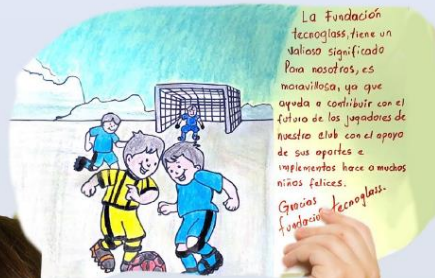 La Fundación
tecnoglass, tiene un
valioso significado
Para nosotros, es
maravillosa, ya que
ayuda a contribuir con el
futuro de los jugadores de
nuestro club con el apoyo
de sus aportes e
implementos hace a muchos
niños felices.
Gracias
fundación tecnoglass.